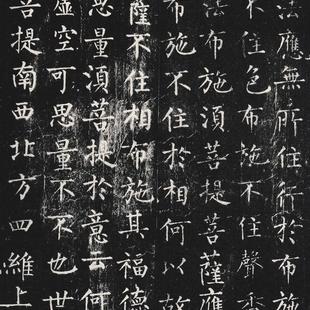 法應無所住行於布施
不住色布施不住聲香
法布施須菩提菩薩應
布施不住於相何以故
薩不住相布施其福德
思量湏菩提於意云何
虛空可思量不不也世
菩提南西北方四維上